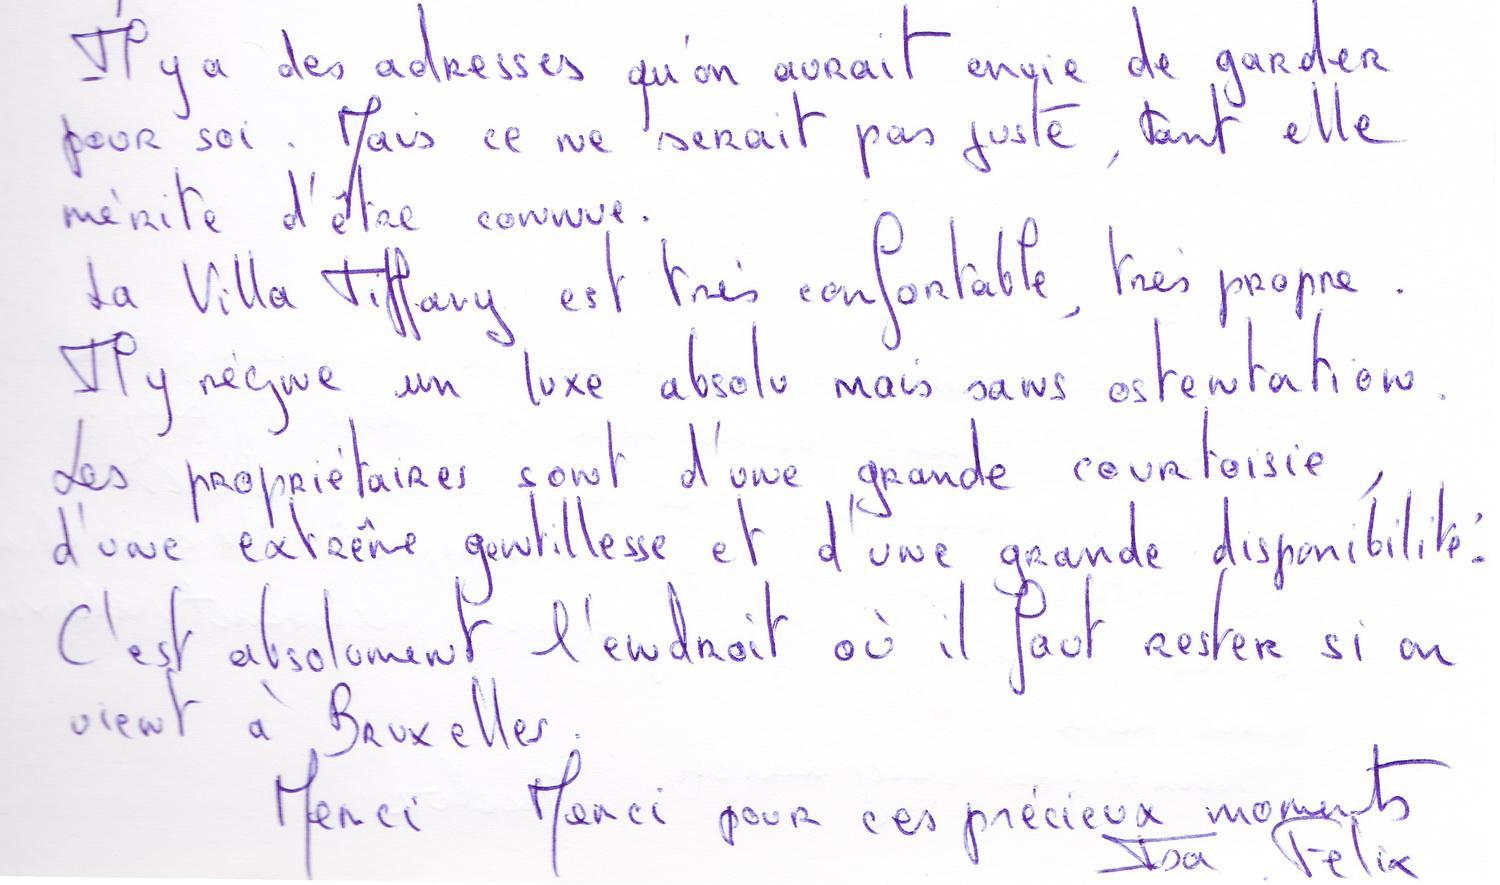 Il y a des adresses qu'on aurait envie de garder
pour soi. Mais ce ne serait pas juste, tant elle
mérite d'être connue.
La Villa Tiffany est très confortable, très propre.
Il y règne un luxe absolu mais sans ostentation.
Les propriétaires sont d'une grande courtoisie,
d'une extrême gentillesse et d'une grande disponibilité.
C'est absolument l'endroit où il faut rester si on
vient à Bruxelles.
Merci Merci pour ces précieux moments
Isa Félix